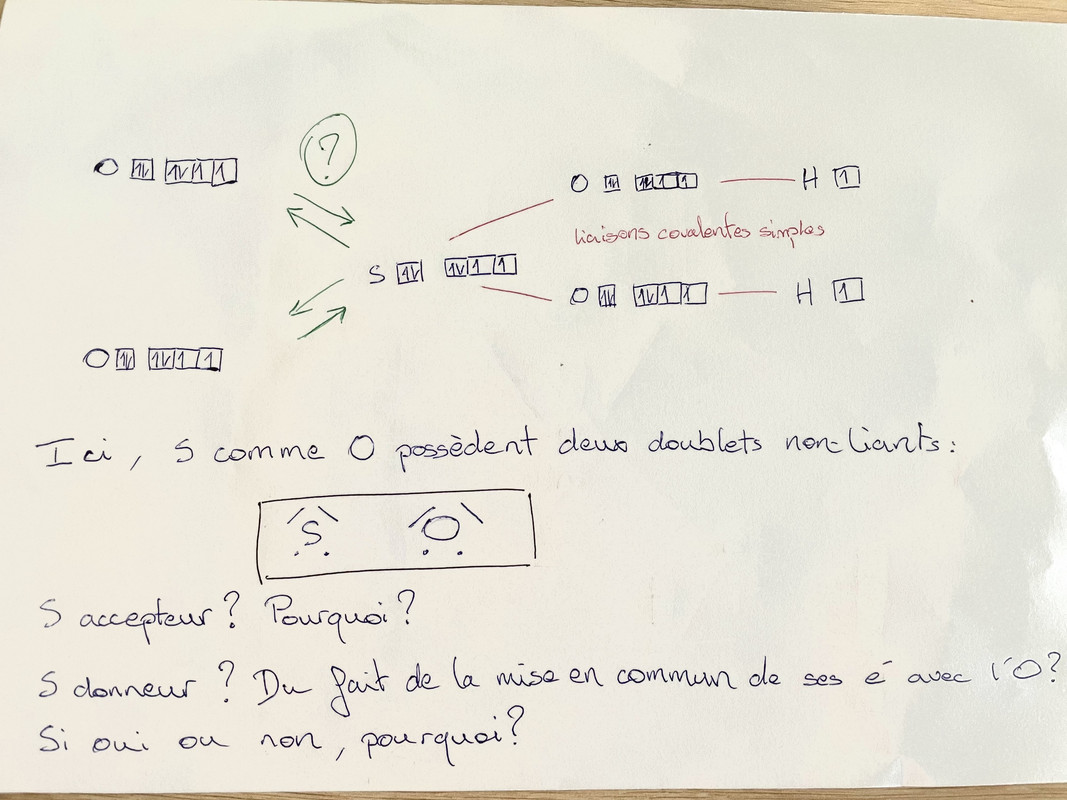 ?
O ⥮ ⥮ 1 1
O ⥮ ⥮ 1 1 H 1
liaisons covalentes simples
S ⥮ ⥮ 1 1
O ⥮ ⥮ 1 1 H 1
O ⥮ ⥮ 1 1
Ici, S comme O possèdent deux doublets non-liants :
S O
S accepteur ? Pourquoi ?
S donneur ? Du fait de la mise en commun de ses é avec l'O ?
Si oui ou non, pourquoi ?